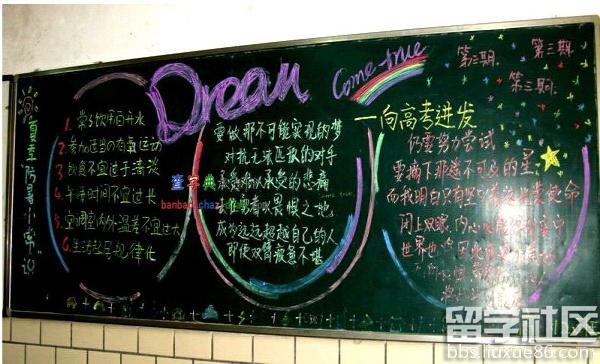 Dream
Come true
第三期
第三期
第三期
夏季防暑小常识
1. 常多饮用白开水
2. 参加适当的有氧运动
3. 饮食不宜过于清淡
4. 午睡时间不宜过长
5. 空调室内外温差不宜过大
6. 生活起居规律化
要做那不可能实现的梦
对抗无法匹敌的对手
承受难以承受的悲痛
以畏惧之地
成为远远超越自己的人
即使双臂疲惫不堪
一向高考进发
仍要努力尝试
要摘下那遥不可及的星
而我明白只有坚
使命
闭上双眼,内心
世界也
查字典
留学社区
bbs.liuxue86.com